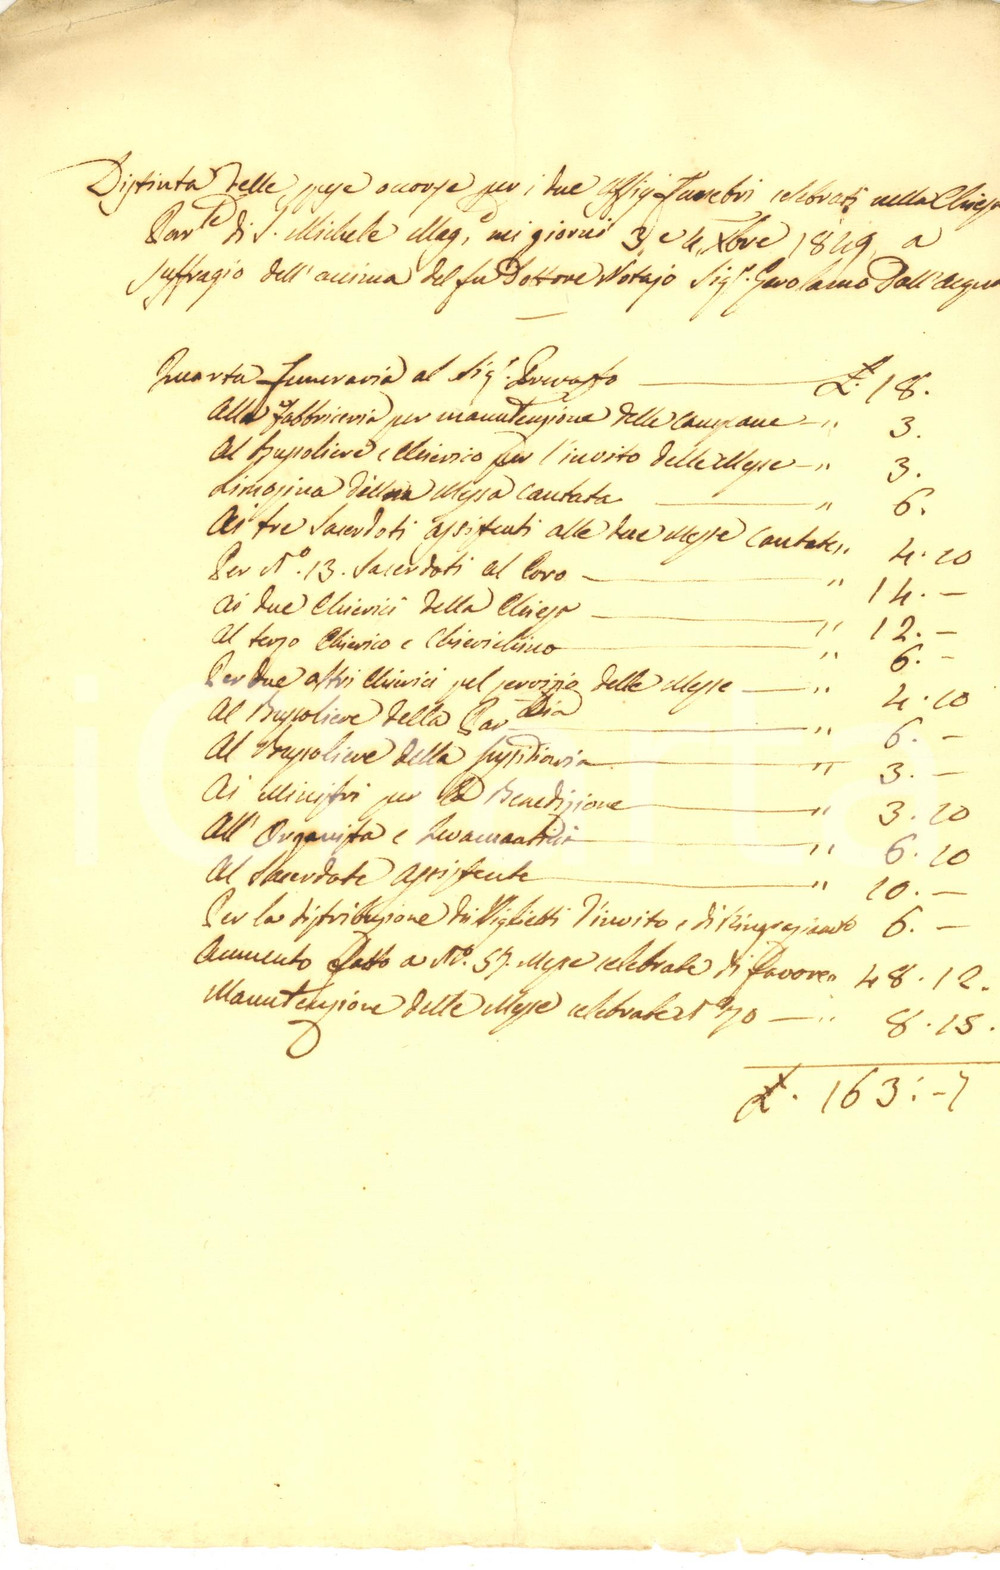 Distinta delle spese occorse per i due Uffizj Funebri celebrati nella Chiesa
Par.le di S. Michele Mag.e nei giorni 3, e 4, Xbre 1849 a
suffragio dell'anima del fu Dottore Notajo Sig.r Gerolamo Dall'Acqua
Quarta Funeraria al Sig.r Prevosto £. 18.
Alla Fabbriceria per manutenzione delle campane " 3.
Al Bussoliere e Chierico per l'invito delle Messe " 3.
Limosina della Messa cantata " 6.
Ai tre Sacerdoti assistenti alle due Messe Cantate " 4.10
Per N.o 13. Sacerdoti al Coro " 14. –
Ai due Chierici della Chiesa " 12. –
Al terzo Chierico e Chierichino " 6. –
Per due altri Chierici pel servizio delle Messe " 4.10
Al Bussoliere della Par.chia " 6. –
Al Bussoliere della Sussidiaria " 3. –
Ai Ministri per la Benedizione " 3.10
All'Organista e Levamantici " 6.10
Al Sacerdote assistente " 10. –
Per la distribuzione dei Viglietti d'invito e di Ringraziamto 6. –
Aumento fatto a N.o 57. Messe celebrate di favore " 48.12.
Manutenzione delle Messe celebrate N.o 70 " 8.15.
£. 163: –7